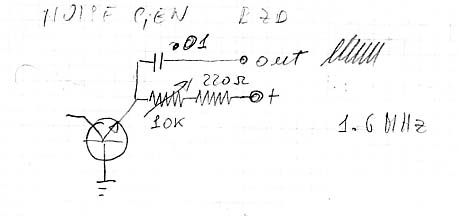 NOISE GEN
.01
out
220Ω
+
10K
1.6 MHz